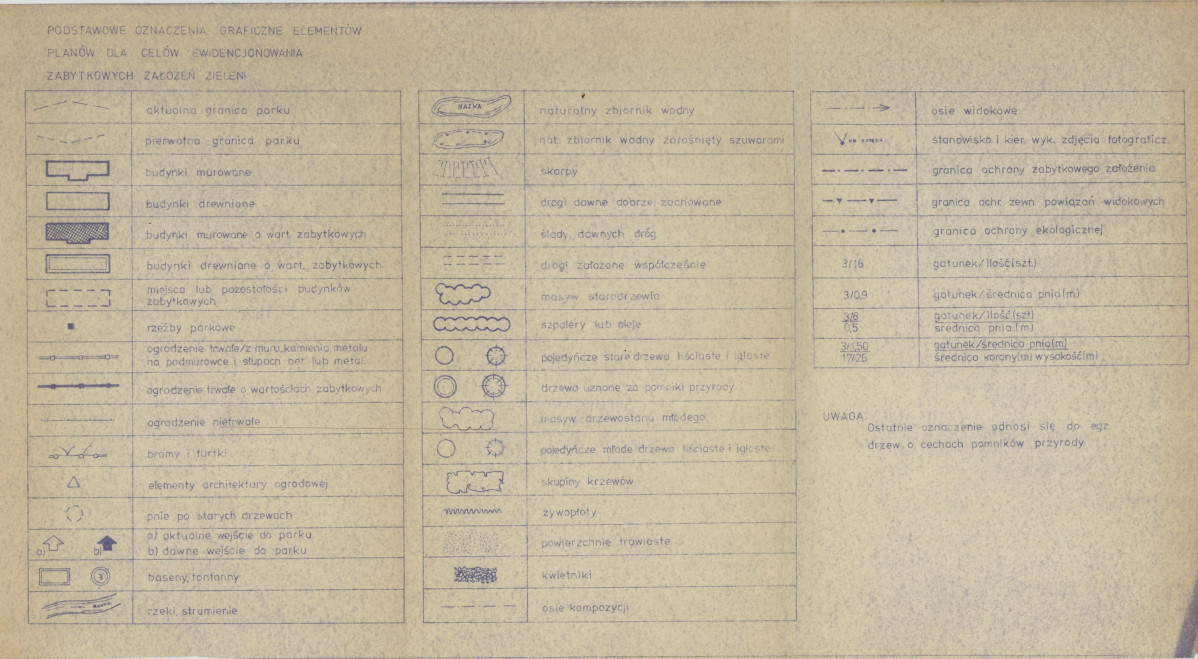 PODSTAWOWE OZNACZENIA GRAFICZNE ELEMENTÓW
PLANÓW DLA CELÓW EWIDENCJONOWANIA
ZABYTKOWYCH ZAŁOŻEŃ ZIELENI
aktualna granica parku
pierwotna granica parku
budynki murowane
budynki drewniane
budynki murowane o wart. zabytkowych
budynki drewniane o wart. zabytkowych
miejsca lub pozostałości budynków
zabytkowych
rzeźby parkowe
ogrodzenie trwałe/z muru, kamienia, metalu
na podmurówce i słupach bet. lub metal.
ogrodzenie trwałe o wartościach zabytkowych
ogrodzenie nietrwałe
bramy i furtki
elementy architektury ogrodowej
pnie po starych drzewach
a) b)
a) aktualne wejście do parku
b) dawne wejście do parku
baseny, fontanny
NAZWA
rzeki, strumienie
NAZWA
naturalny zbiornik wodny
nat. zbiornik wodny zarośnięty szuwarami
skarpy
drogi dawne dobrze zachowane
ślady dawnych dróg
drogi założone współcześnie
masyw starodrzewia
szpalery lub aleje
pojedyńcze stare drzewa liściaste i iglaste
drzewa uznane za pomniki przyrody
masyw drzewostanu młodego
pojedyńcze młode drzewa liściaste i iglaste
skupiny krzewów
żywopłoty
powierzchnie trawiaste
kwietniki
osie kompozycji
osie widokowe
stanowisko i kier. wyk. zdjęcia fotograficz.
granica ochrony zabytkowego założenia
granica ochr. zewn. powiązań widokowych
granica ochrony ekologicznej
3/16 gatunek/ilość(szt.)
3/0,9 gatunek/średnica pnia(m)
3/8 gatunek/ilość(szt)
0,5 średnica pnia(m)
3/1,50 gatunek/średnica pnia(m)
17/25 średnica korony(m) wysokość(m)
UWAGA:
Ostatnie oznaczenie odnosi się do egz.
drzew o cechach pomników przyrody